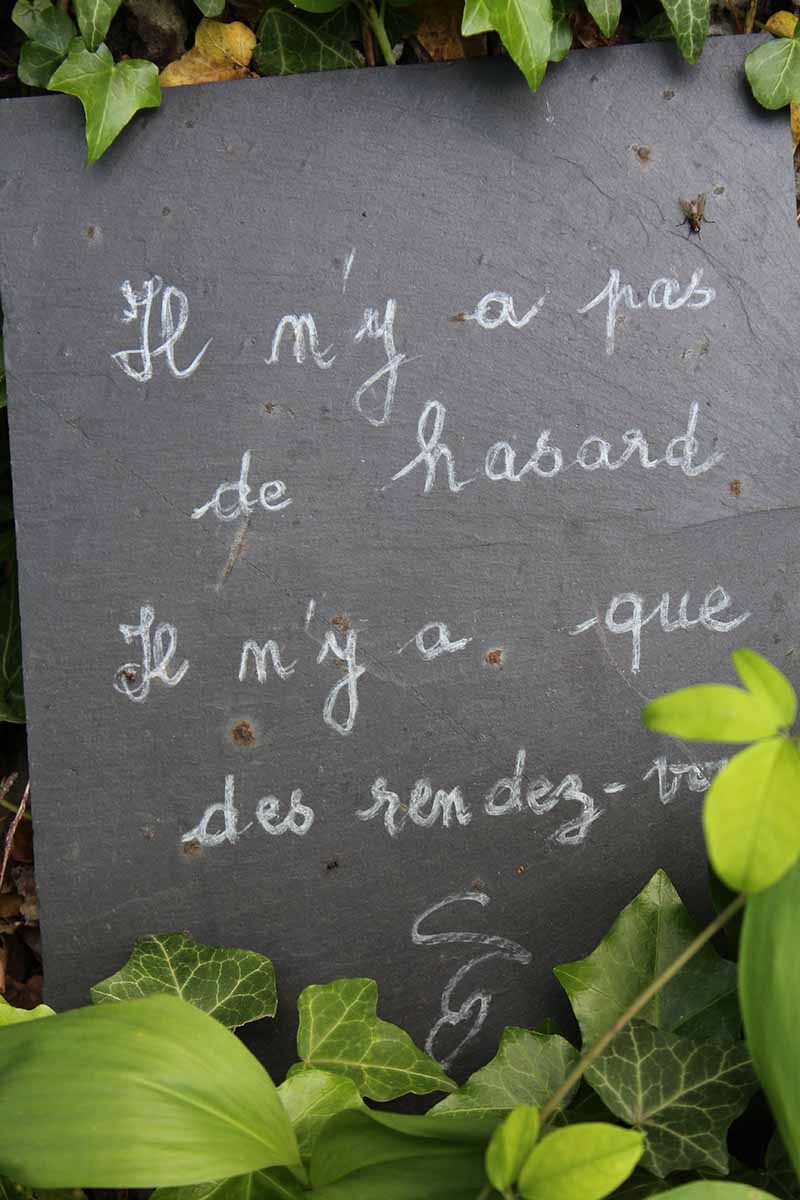 Il n'y a pas
de hasard
Il n'y a que
des rendez-vo